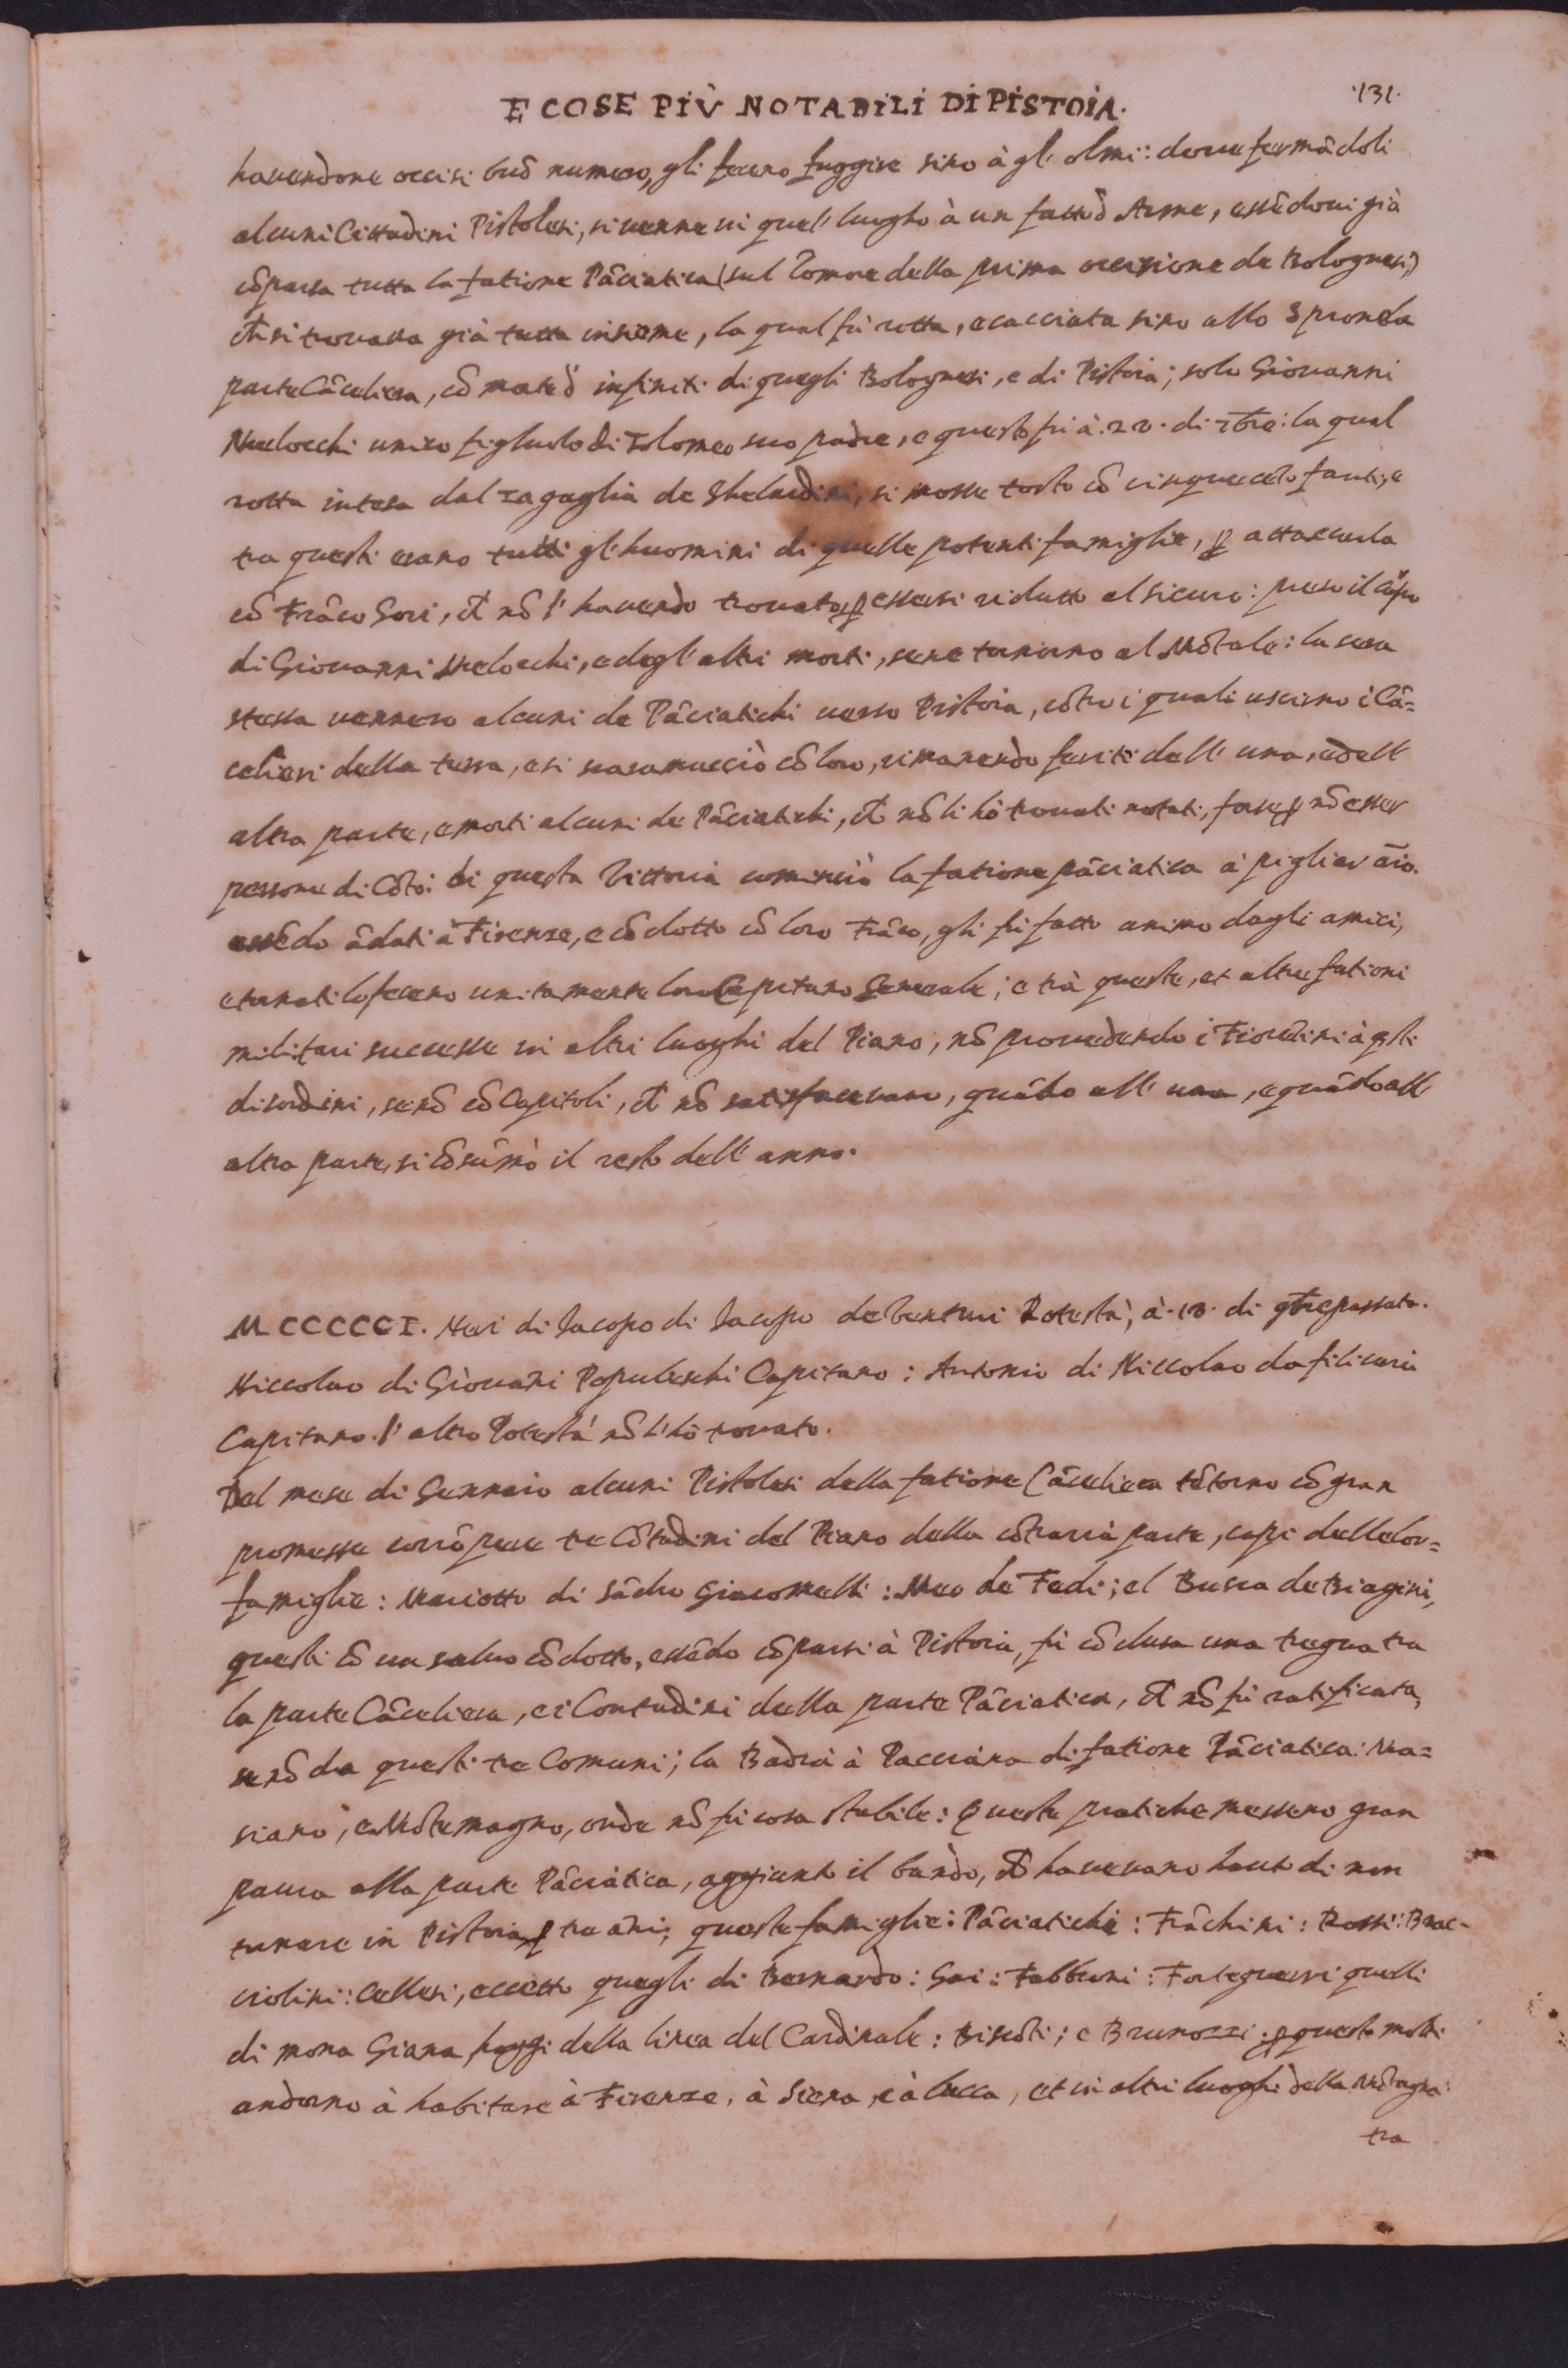 E COSE PIÙ NOTABILI DI PISTOIA.
·131·
havendone occisi buõ numero, gli fecero fuggire sino à gl'olmi: doue fermâdoli
alcuni Cittadini Pistolesi, si venne in quel luogho à un fatto d Arme, essêdoui già
cõparsa tutta la fatione Pâciatica (sul romore della prima occisione de Bolognesi)
ch̃ si trouaua già tutta insieme, la qual fù rotta, e cacciata sino allo Sprone da
parte Câceliera, cõ morte d' infiniti di quegli Bolognesi, e di Pistoia; solo Giouanni
Melocchi unico figliuolo di Tolomeo suo padre, e questo fù à . di 7bre: la qual
rotta intesa dal zagaglia de Ghelardini, si mosse tosto cõ cinquecêto fanti, e
tra questi erano tutti gl'huomini di quelle potenti famiglie, ꝑ attaccarla
cõ Frâco Gori, ch̃ nõ l' havendo trouato, ꝑ essersi ridutto al sicuro: preso il còrpo
di Giouanni Melocchi, e degl' altri morti, se ne tornorno al Mõtale: la sera
stessa vennero alcuni de Pâciatichi verso Pistoia, cõtro i quali uscirno i Câ=
celieri della terra, e si scaramucciò cõ loro, rimanendo feriti dell' una, e dell'
altra parte, e morti alcuni de Pâciatichi, ch̃ nõ li hò trouati notati, forse ꝑ nõ esser
persone di Cõto: di questa Vittoria cominciò la fatione pâciatica à pigliar âio.
essêdo âdati à Firenze, e cõdotto cõ loro Frâco, gli fù fatto animo dagli amici,
e tornati lo fecero unitamente loro Capitano Generale; e trà queste, et altre fationi
militari successe in altri luoghi del Piano, nõ prouedendo i Fiorêtini à gli
disordini, se nõ cõ Capitoli, ch̃ nõ satisfaceuano, quâdo all' una, e quâdo all'
altra parte, si cõsûmò il resto dell' anno.
MCCCCCI. Neri di Iacopo di Iacopo de Venturi Potestà, à . di passato.
Niccolao di Giouâni Popoleschi Capitano: Antonio di Niccolao da filicaia
Capitano. l' altro Potestà nõ l'hò trouato.
Del mese di Gennaio alcuni Pistolesi della fatione Câceliera têtorno cõ gran
promesse corrõpere tre Cõtadini del Piano della cõtraria parte, capi delle lor=
famiglie: Mariotto di Sâdro Giacomelli: Meo de Fedi; el Busca de Biagini,
questi cõ un saluo cõdotto, essêdo cõparsi à Pistoia, fù cõclusa una tregua tra
la parte Câceliera, e i Contadini della parte Pâciatica, ch̃ nõ fù ratificata,
se nõ da questi tre Comuni; la Badia à Pacciana di fatione Pâciatica: Ma=
siano, e Mõtemagno, onde nõ fù cosa stabile: Queste pratiche messero gran
paura alla parte Pâciatica, aggiunto il bando, ch̃ haveuano hauto di non
tornare in Pistoia ꝑ tre âni; queste famiglie: Pâciatichi: Frâchini: Rossi: Brac=
ciolini: Cellesi, eccetto quegli di Bernardo: Gai: Fabbroni: Forteguerri quelli
di mona Giana, hoggi della linea del Cardinale: Biscõti; e Brunozzi: ꝑ questo molti
andorno à habitare à Firenze, à Siena, e à Lucca, et in altri luoghi della Mõtagna:
tra